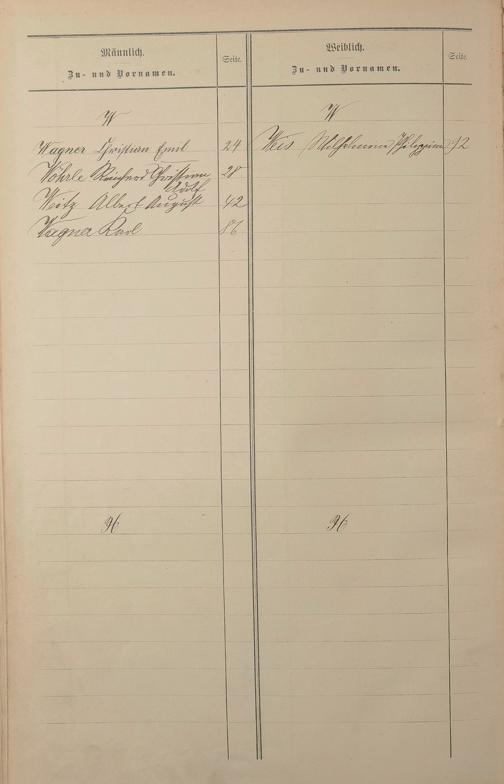 Männlich.
Zu- und Vornamen.
Seite.
W
Wagner Christian Emil 24
Wöhrle Reinhard Christian 28
Adolf
Weitz Albert August 42
Wagner Karl 86
Weiblich.
Zu- und Vornamen.
Seite.
W
Weis Wilhelmine Philippine 12